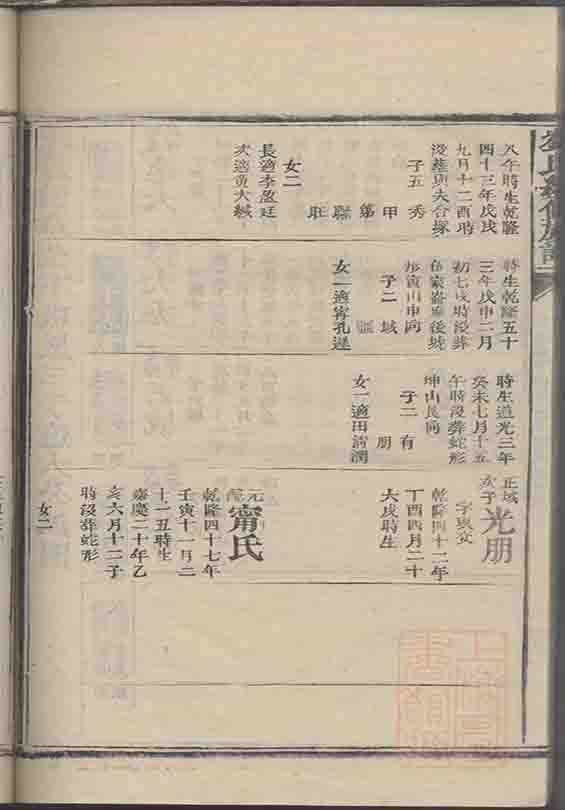 八午時生乾隆
四十三年戊戌
九月十二酉時
沒葬與夫合塚
子五 秀
甲
第
聯
旺
女二
長適李盈廷
次適黃大緘
時生乾隆五十
三年戊申二月
初七戌時沒葬
形寅山申向
子二 域
女一適甯孔遲
時生道光三年
癸未七月十五
午時沒葬蛇形
坤山艮向
子二 有
朋
女一適田前潤
正域
次子
光朋
乾隆四十二年
丁酉四月二十
六戌時生
元
配
甯氏
乾隆四十七年
壬寅十一月二
十一丑時生
嘉慶二十年乙
亥六月十二子
時沒葬蛇形
女二